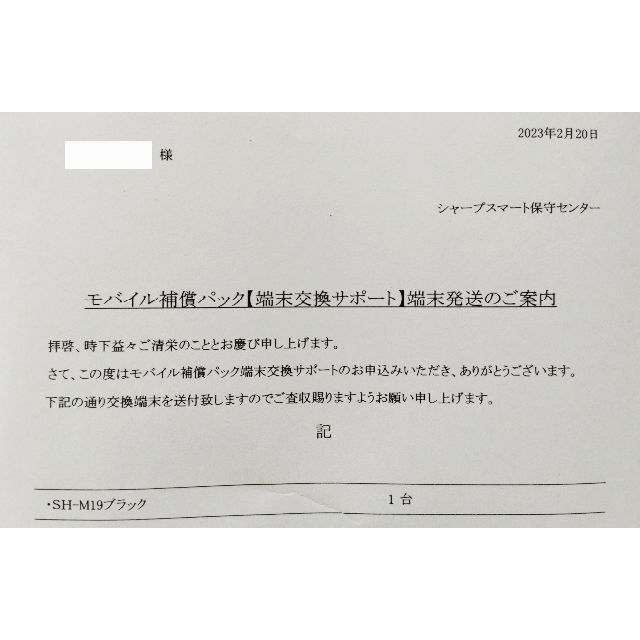 2023年2月20日
様
シャープスマート保守センター
モバイル補償パック【端末交換サポート】端末発送のご案内
拝啓、時下益々ご清栄のこととお慶び申し上げます。
さて、この度はモバイル補償パック端末交換サポートのお申込みいただき、ありがとうございます。
下記の通り交換端末を送付致しますのでご査収賜りますようお願い申し上げます。
記
・SH-M19ブラック 1台